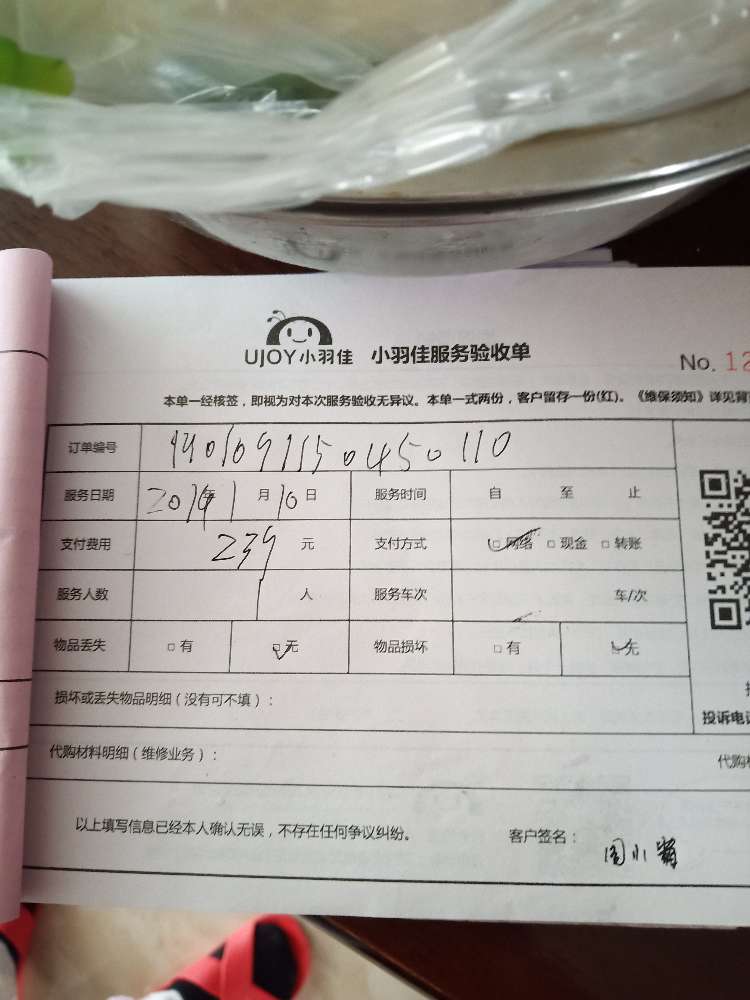 UJOY小羽佳 小羽佳服务验收单
No. 12
本单一经核签，即视为对本次服务验收无异议。本单一式两份，客户留存一份(红)。《维保须知》详见背
订单编号 1901091150450110
服务日期 2019年1月10日 服务时间 自 至 止
支付费用 239 元 支付方式 □网络 □现金 □转账
服务人数 1 人 服务车次 车/次
物品丢失 □有 □无 物品损坏 □有 □无
损坏或丢失物品明细（没有可不填）：
投诉电
代购材料明细（维修业务）：
代购
以上填写信息已经本人确认无误，不存在任何争议纠纷。 客户签名： 周小